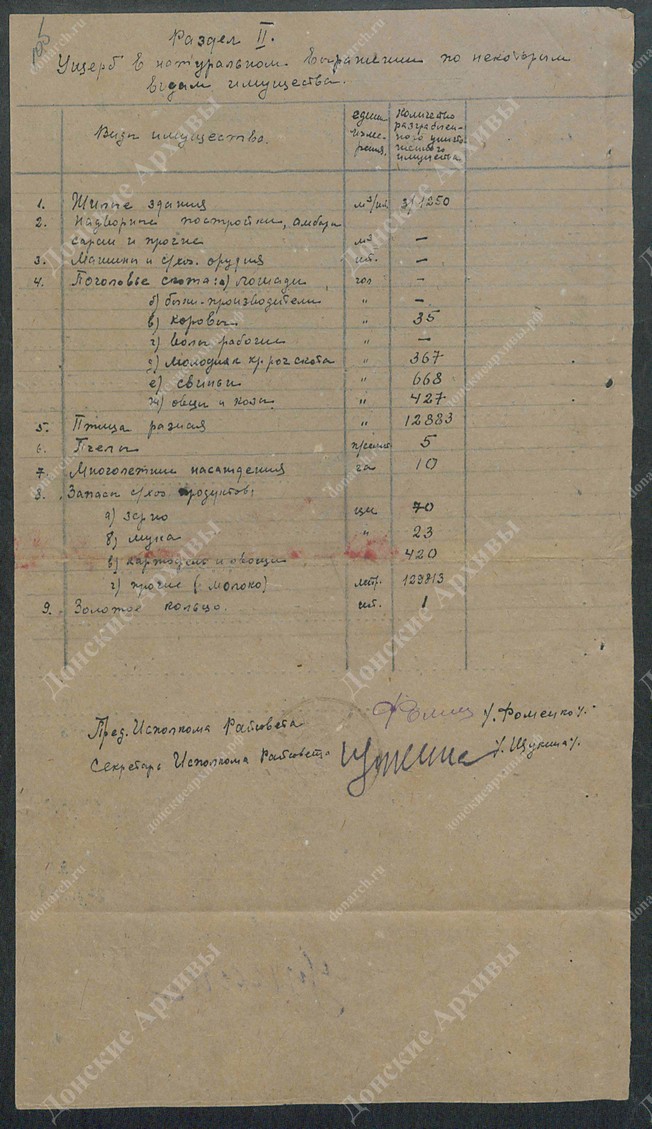 Раздел II.
Ущерб в натуральном выражении по некоторым
видам имущества.
Виды имущества.
един. измерения.
Количество
разграбленного уничтоженного
имущества
1. Жилые здания м³/шт 3/1250
2. Надворные постройки, амбары
сараи и прочие м³ —
3. Машины и с/хоз. орудия шт. —
4. Поголовье скота: а) лошади гол —
б) быки-производители " —
в) коровы " 35
г) волы рабочие " —
д) молодняк кр. рог скота " 367
е) свиньи " 668
ж) овцы и козы " 427
5. Птица разная " 12883
6. Пчелы 5
7. Многолетние насаждения га 10
8. Запасы с/хоз продуктов:
а) зерно цн 70
б) мука " 23
в) картофель и овощи 420
г) прочие (молоко) литр. 129813
9. Золотое кольцо. шт. 1
Пред. Исполкома Райсовета /. Фоменко /.
Секретарь Исполкома Райсовета Щукина /. Щукина /.
Донские Архивы
donarch.ru
донскиеархивы.рф